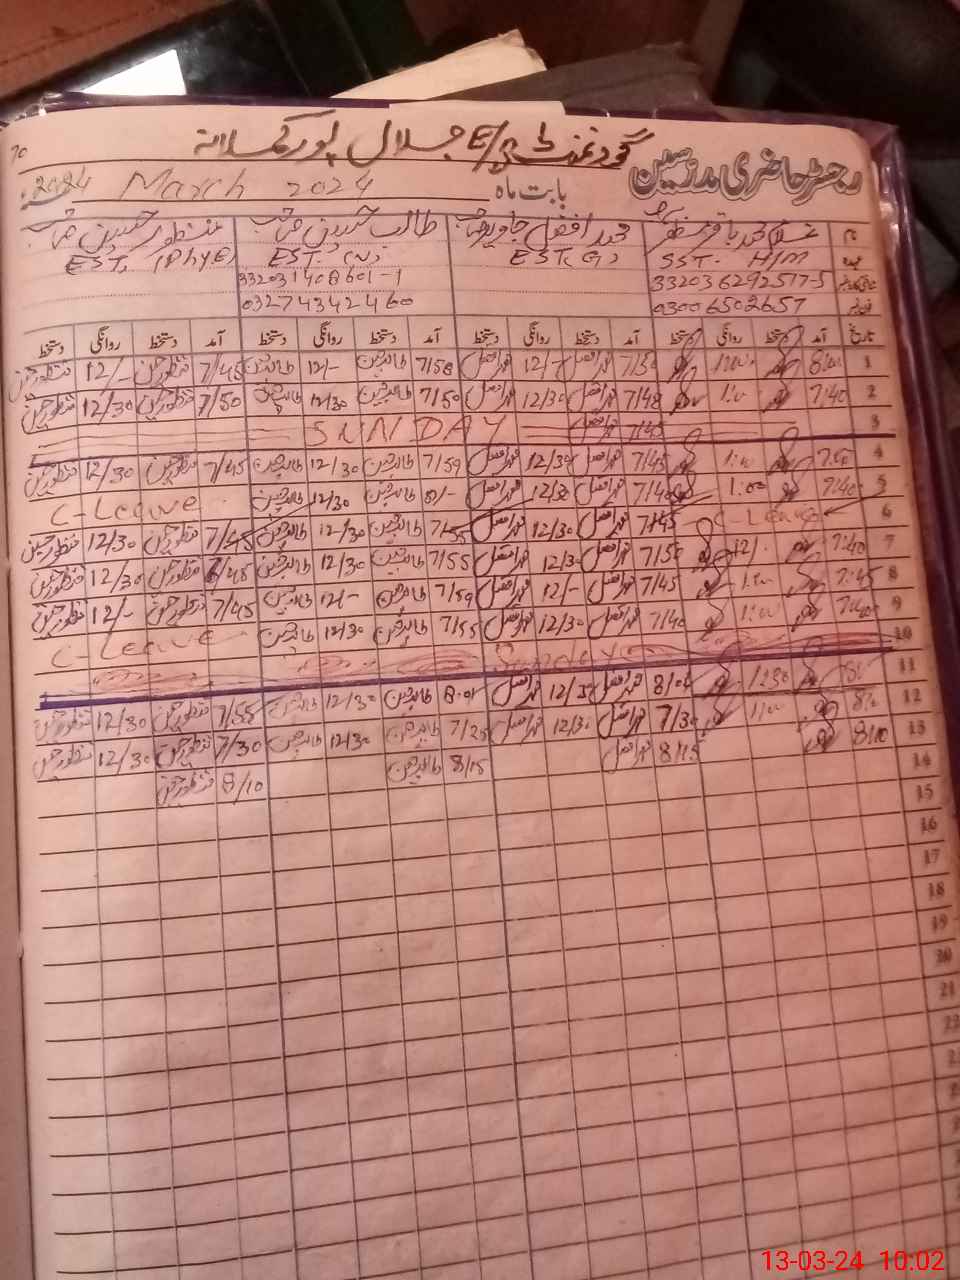 70
گورنمنٹ E/S جلال پور کملانہ
رجسٹر حاضری مدرسین
بابت ماہ March 2024 2024
نام غلام محمد باقر محمد افضل جاوید صاحب طالب حسین صاحب منظور حسین صاحب
عہدہ SST. H/M EST(G) EST. EST. (PhyE)
332036292517-5 332031408601-1
03006502657 03274342460
تاریخ آمد دستخط روانگی دستخط آمد دستخط روانگی دستخط آمد دستخط روانگی دستخط آمد دستخط روانگی دستخط
1 8:00 7/50 محمد افضل 12/- محمد افضل 7/50 طالب حسین 12/- طالب حسین 7/45 منظور حسین 12/- منظور حسین
2 7:40 1:00 7/48 محمد افضل 12/30 محمد افضل 7/50 طالب حسین 12/30 طالب حسین 7/50 منظور حسین 12/30 منظور حسین
3 7/45 محمد افضل SUNDAY
4 7:50 1:00 7/45 محمد افضل 12/30 محمد افضل 7/59 طالب حسین 12/30 طالب حسین 7/45 منظور حسین 12/30 منظور حسین
5 7:40 1:00 7/40 محمد افضل 12/30 محمد افضل 8/- طالب حسین 12/30 طالب حسین C-Leave
6 C-Leave 7/45 محمد افضل 12/30 محمد افضل 7/55 طالب حسین 12/30 طالب حسین 7/45 منظور حسین 12/30 منظور حسین
7 7:40 12/. 7/50 محمد افضل 12/30 محمد افضل 7/55 طالب حسین 12/30 طالب حسین منظور حسین 12/30 منظور حسین
8 7:45 1:00 7/45 محمد افضل 12/- محمد افضل 7/59 طالب حسین 12/- طالب حسین 7/45 منظور حسین 12/- منظور حسین
9 7:40 1:00 7/40 محمد افضل 12/30 محمد افضل 7/55 طالب حسین 12/30 طالب حسین C-Leave
10 Sunday
11 1:30 محمد افضل 12/30 محمد افضل 8:01 طالب حسین 12/30 طالب حسین 7/55 منظور حسین 12/30 منظور حسین
12 1:00 7/30 محمد افضل 12/30 محمد افضل 7/25 طالب حسین 12/30 طالب حسین 7/30 منظور حسین 12/30 منظور حسین
13 8/10 8/15 محمد افضل 8/15 طالب حسین 8/10 منظور حسین
14
15
16
17
18
19
20
21
22
13-03-24 10:02